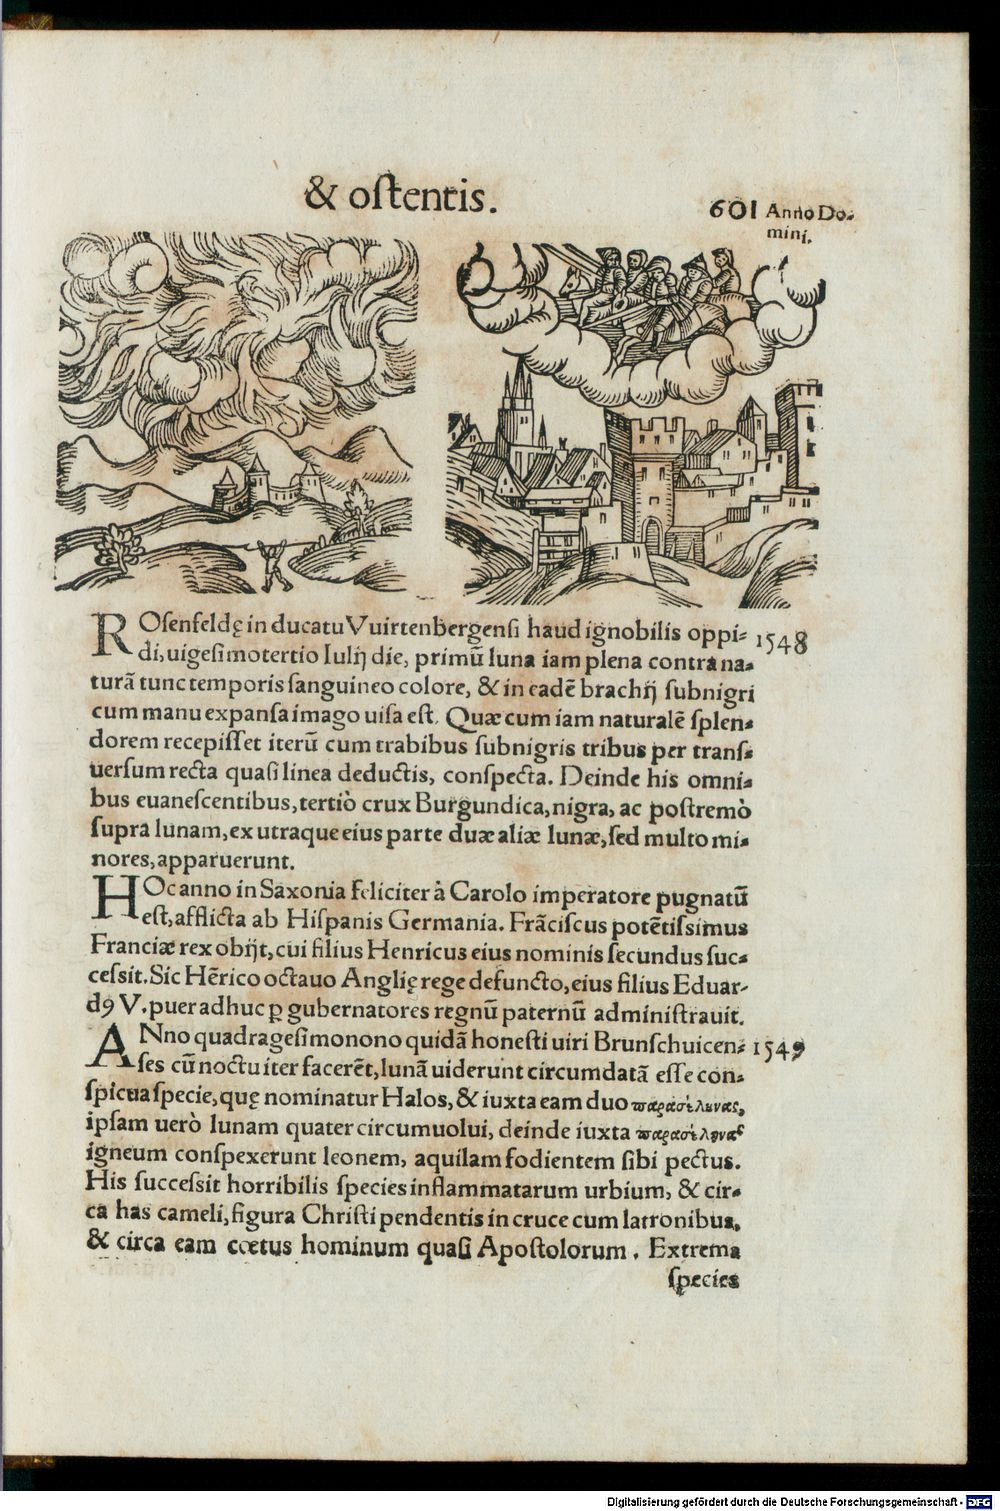 & oſtentis.
601 Anno Do-
mini.
ROſenfeldę in ducatu Vuirtenbergenſi haud ignobilis oppi- 1548
di, uigeſimotertio Iulĳ die, primū luna iam plena contra na-
turā tunc temporis ſanguineo colore, & in eadē brachĳ ſubnigri
cum manu expanſa imago uiſa eſt. Quæ cum iam naturalē ſplen-
dorem recepiſſet iterū cum trabibus ſubnigris tribus per tranſ-
uerſum recta quaſi linea deductis, conſpecta. Deinde his omni-
bus euaneſcentibus, tertiò crux Burgundica, nigra, ac poſtremò
ſupra lunam, ex utraque eius parte duæ aliæ lunæ, ſed multo mi-
nores, apparuerunt.
HOc anno in Saxonia feliciter à Carolo imperatore pugnatū
eſt, afflicta ab Hiſpanis Germania. Frāciſcus potētiſsimus
Franciæ rex obĳt, cui filius Henricus eius nominis ſecundus ſuc-
ceſsit. Sic Hērico octauo Anglię rege defuncto, eius filius Eduar-
dꝰ V. puer adhuc ꝑ gubernatores regnū paternū adminiſtrauit.
ANno quadrageſimonono quidā honeſti uiri Brunſchuicen- 1549
ſes cū noctu iter facerēt, lunā uiderunt circumdatā eſſe con-
ſpicua ſpecie, quę nominatur Halos, & iuxta eam duo παρασέλωας,
ipſam uerò lunam quater circumuolui, deinde iuxta παρασέλωας
igneum conſpexerunt leonem, aquilam fodientem ſibi pectus.
His ſucceſsit horribilis ſpecies inflammatarum urbium, & cir-
ca has cameli, figura Chriſti pendentis in cruce cum latronibus,
& circa eam cœtus hominum quaſi Apoſtolorum. Extrema
ſpecies
Digitalisierung gefördert durch die Deutsche Forschungsgemeinschaft - DFG